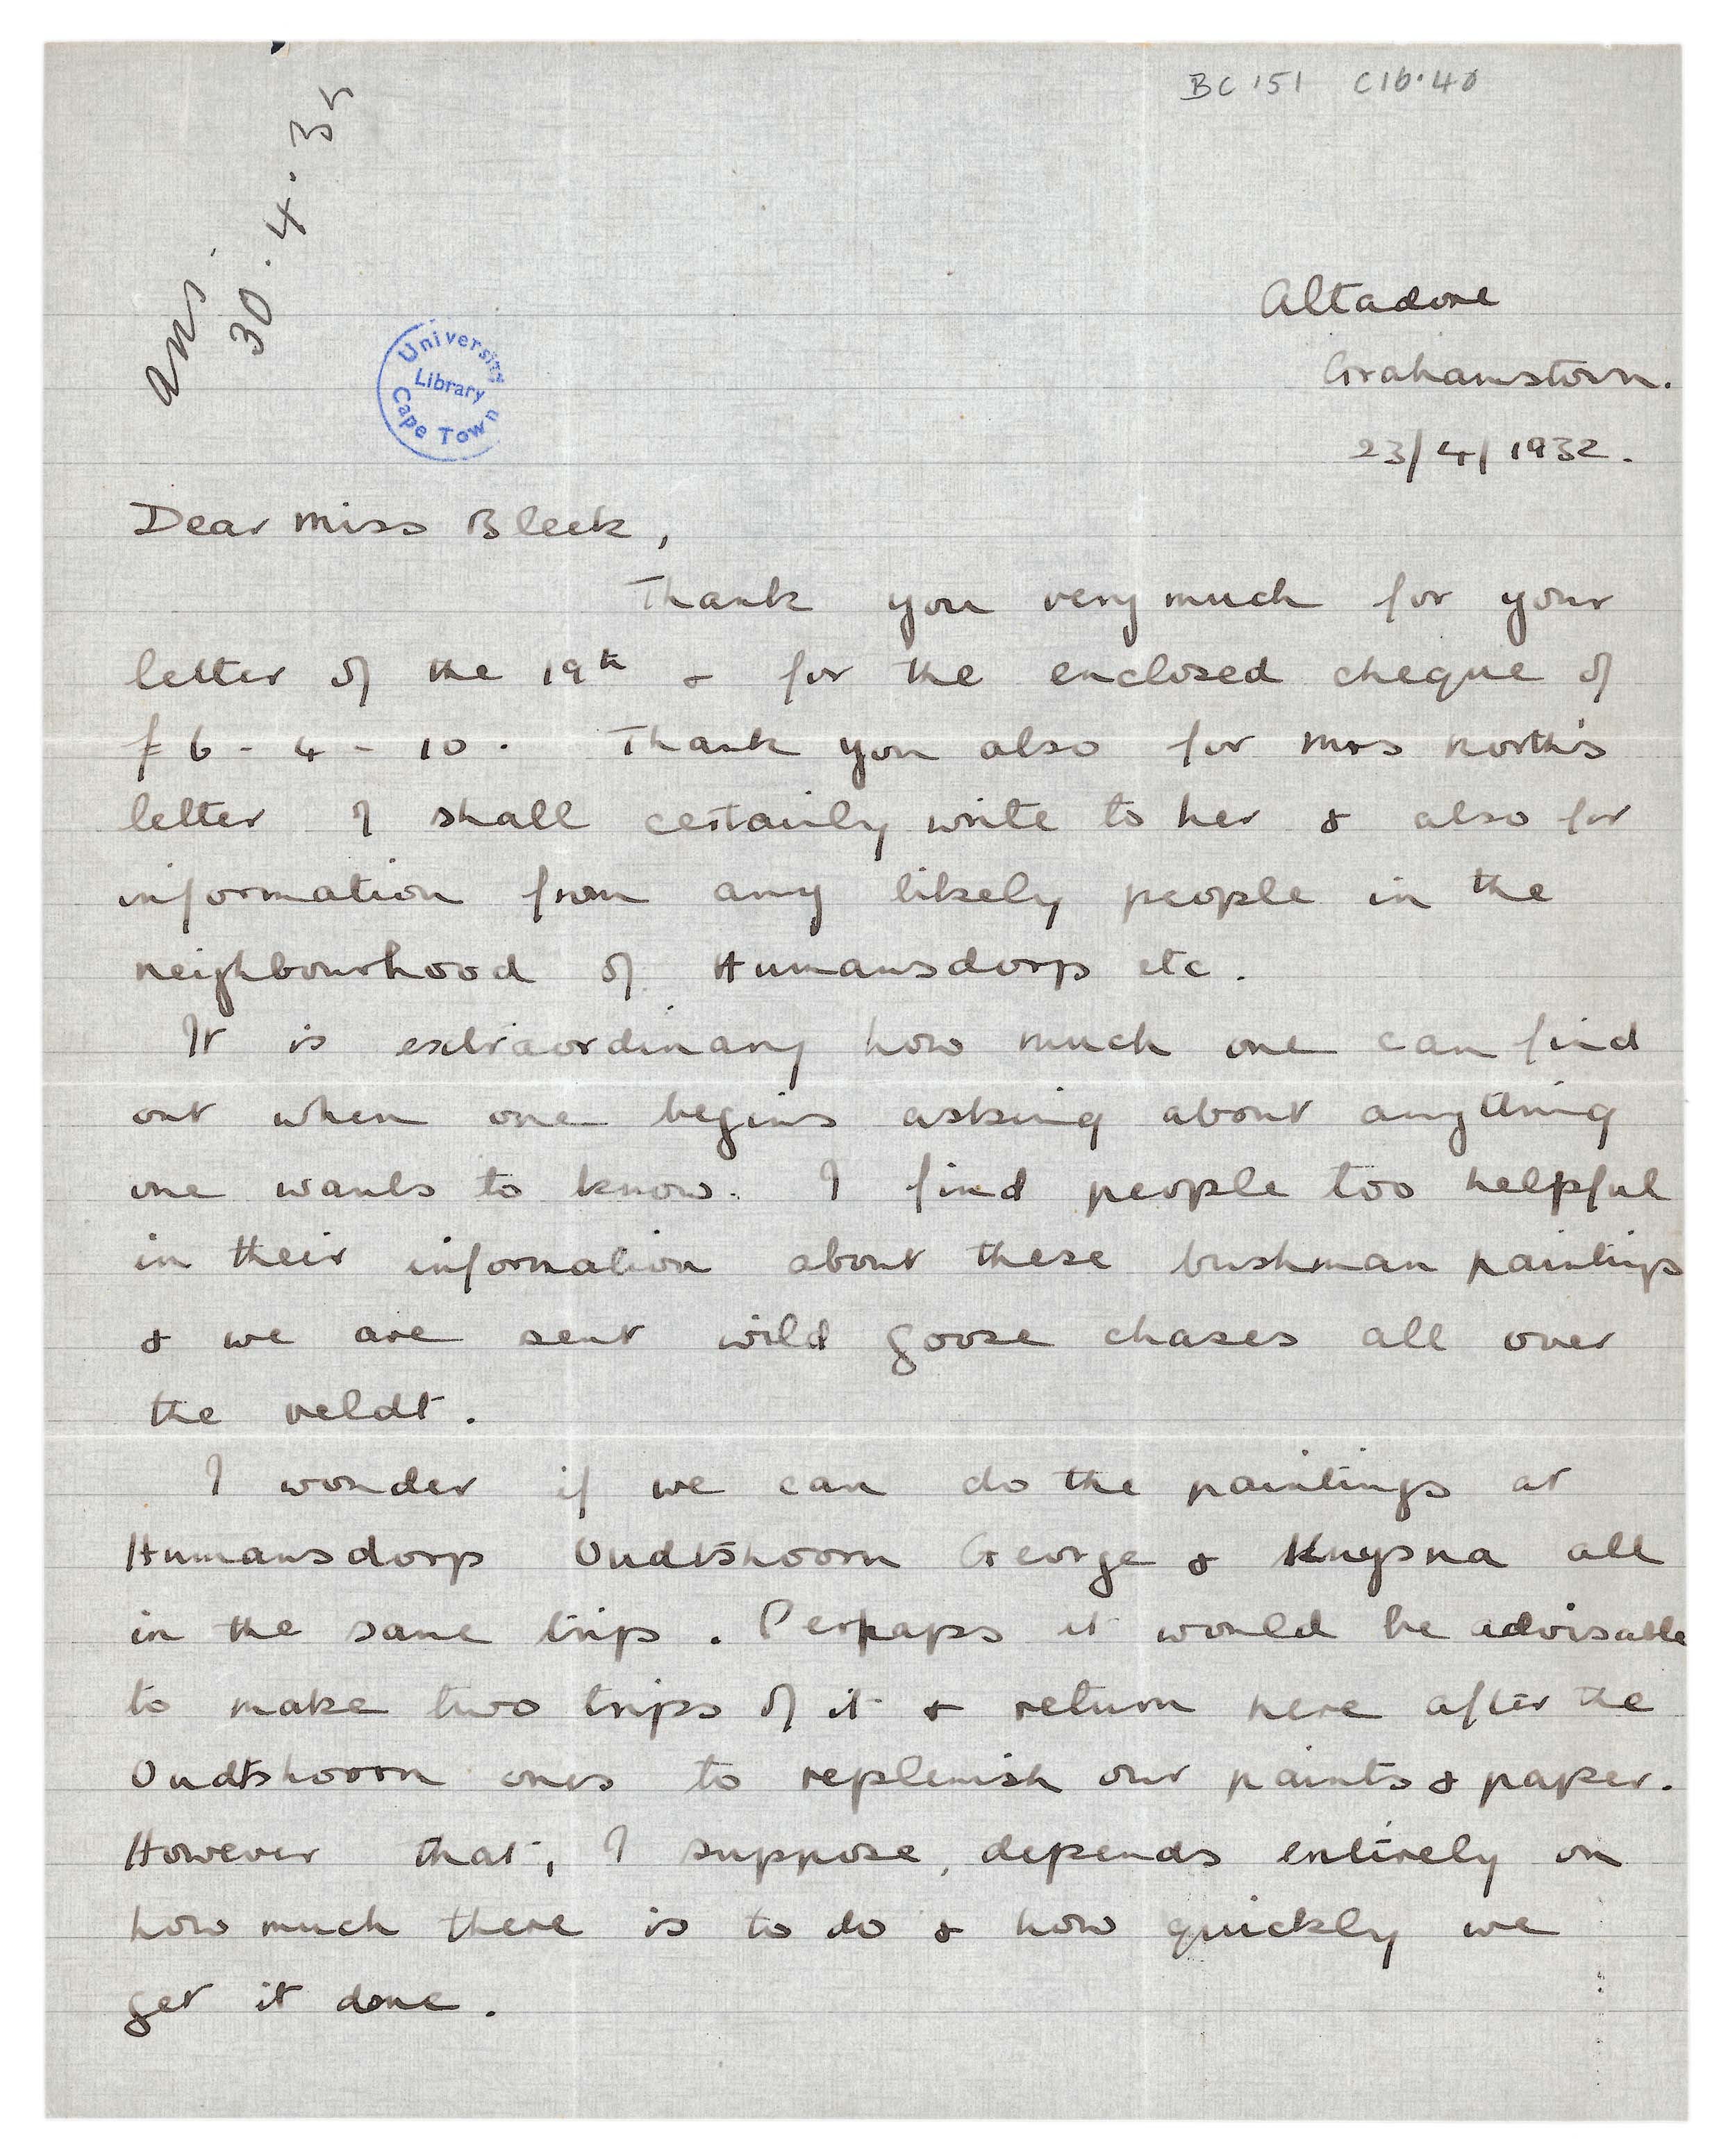 BC 151 C16.40
ans.
30.4.32
University Library Cape Town
Altadore
Grahamstown.
23/4/1932.
Dear Miss Bleek,
Thank you very much for your
letter of the 19th & for the enclosed cheque of
£6-4-10. Thank you also for Mrs North's
letter I shall certainly write to her & also for
information from any likely people in the
neighbourhood of Humansdorp etc.
It is extraordinary how much one can find
out when one begins asking about anything
one wants to know. I find people too helpful
in their information about these bushman paintings
& we are sent wild goose chases all over
the veldt.
I wonder if we can do the paintings at
Humansdorp Oudtshoorn George & Knysna all
in the same trip. Perhaps it would be advisable
to make two trips of it & return here after the
Oudtshoorn ones to replenish our paints & paper.
However that, I suppose, depends entirely on
how much there is to do & how quickly we
get it done.